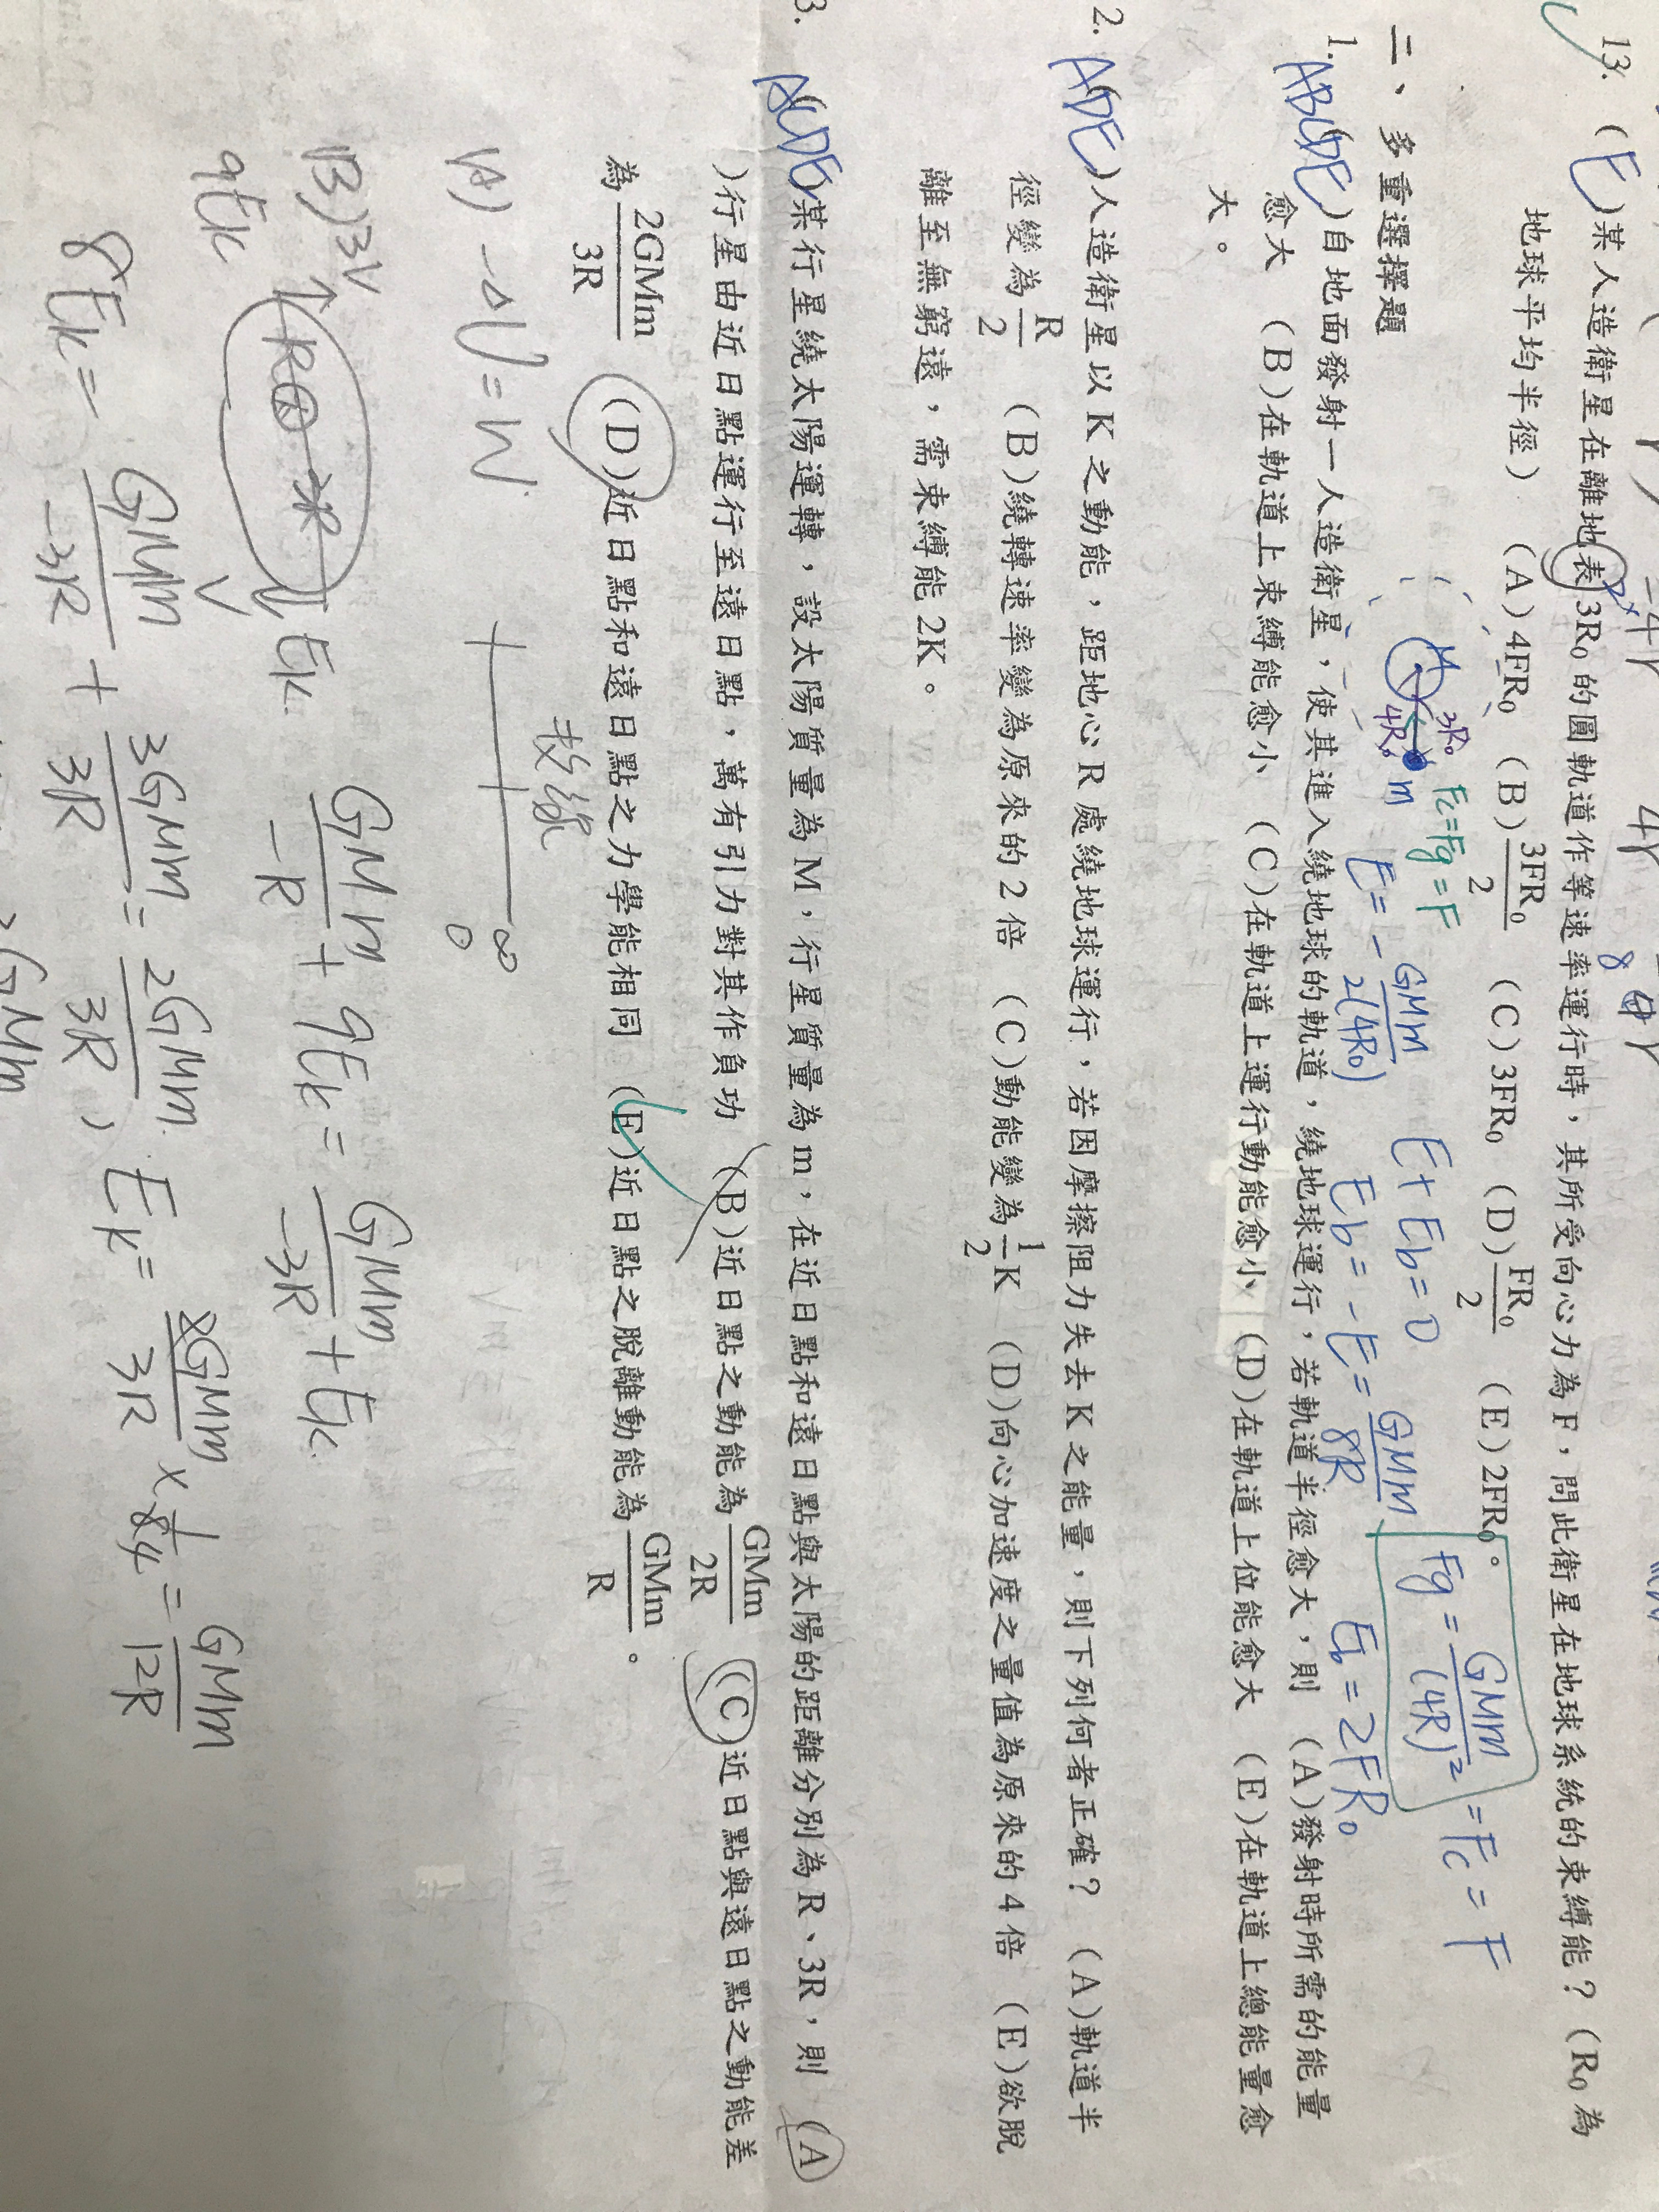 13. (E)某人造衛星在離地表3R₀的圓軌道作等速率運行時，其所受向心力為F，問此衛星在地球系統的束縛能？(R₀為
地球平均半徑) (A)4FR₀ (B)3FR₀/2 (C)3FR₀ (D)FR₀/2 (E)2FR₀。
M 3R₀ 4R₀ m
Fc=Fg=F
E=-GMm/2(4R₀)
E+Eb=0
Eb=-E=GMm/8R
Eb=2FR₀
Fg=GMm/(4R)²=Fc=F
二、多重選擇題
1. (ABCDE)自地面發射一人造衛星，使其進入繞地球的軌道，繞地球運行，若軌道半徑愈大，則 (A)發射時所需的能量
愈大 (B)在軌道上束縛能愈小 (C)在軌道上運行動能愈小 (D)在軌道上位能愈大 (E)在軌道上總能量愈
大。
2. (ADE)人造衛星以K之動能，距地心R處繞地球運行，若因摩擦阻力失去K之能量，則下列何者正確？ (A)軌道半
徑變為R/2 (B)繞轉速率變為原來的2倍 (C)動能變為1/2K (D)向心加速度之量值為原來的4倍 (E)欲脫
離至無窮遠，需束縛能2K。
3. (ACDE)某行星繞太陽運轉，設太陽質量為M，行星質量為m，在近日點和遠日點與太陽的距離分別為R、3R，則 (A
)行星由近日點運行至遠日點，萬有引力對其作負功 (B)近日點之動能為GMm/2R (C)近日點與遠日點之動能差
為2GMm/3R (D)近日點和遠日點之力學能相同 (E)近日點之脫離動能為GMm/R。
(A) -ΔU=W
∞
0
(B) 3V
R
3R
V
9Ek
Ek
GMm/-R+9Ek=GMm/-3R+Ek
8Ek=GMm/-3R+3GMm/3R=2GMm/3R, Ek=2GMm/3R×1/84=GMm/12R
GMm